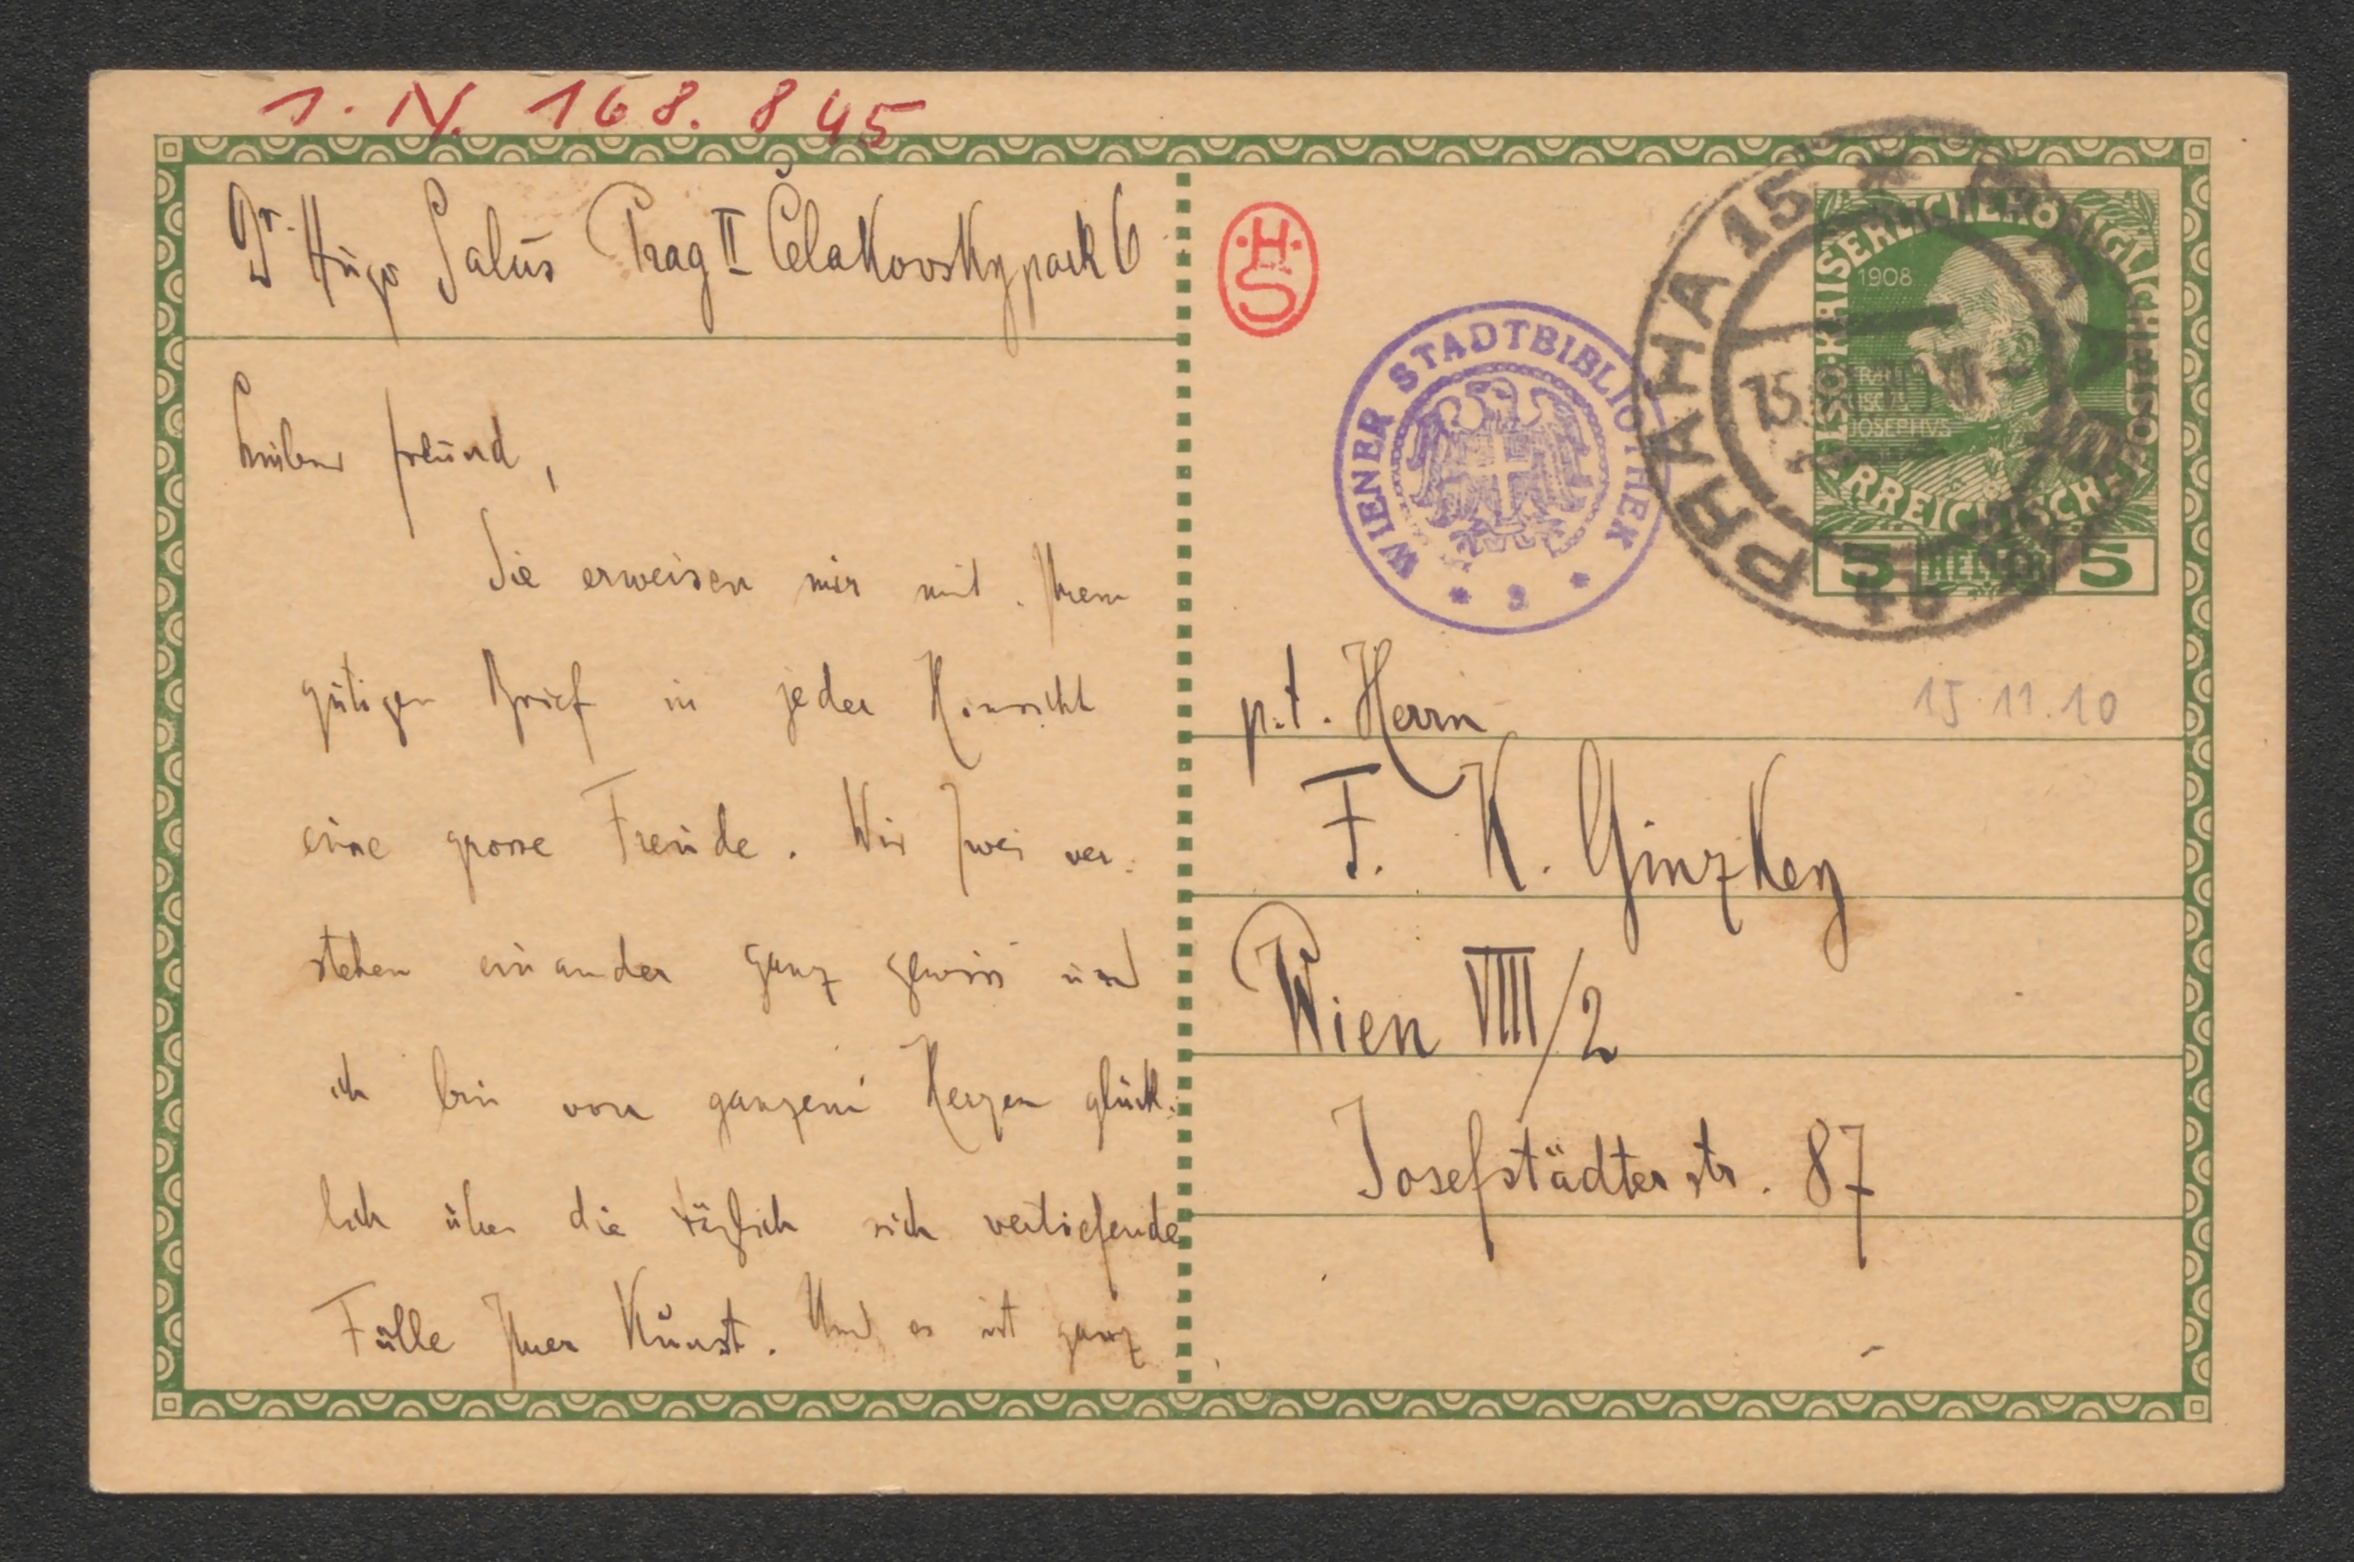 I. N. 168.845
Dr. Hugo Salus Prag II Čelakovskypark 6
Lieber Freund,
Sie erweisen mir mit Ihrem
gütigen Brief in jeder Hinsicht
eine grosse Freude. Wir zwei ver-
stehen einander ganz gewiss und
ich bin von ganzem Herzen glück-
lich über die täglich sich vertiefende
Fülle Ihrer Kunst. Und es ist ganz
HS
WIENER STADTBIBLIOTHEK
PRAHA 15
1908
FRANCISCVS JOSEPHVS
5 HELLER 5
15.11.10
p.t. Herrn
F. K. Ginzkey
Wien VIII/2
Josefstädterstr. 87